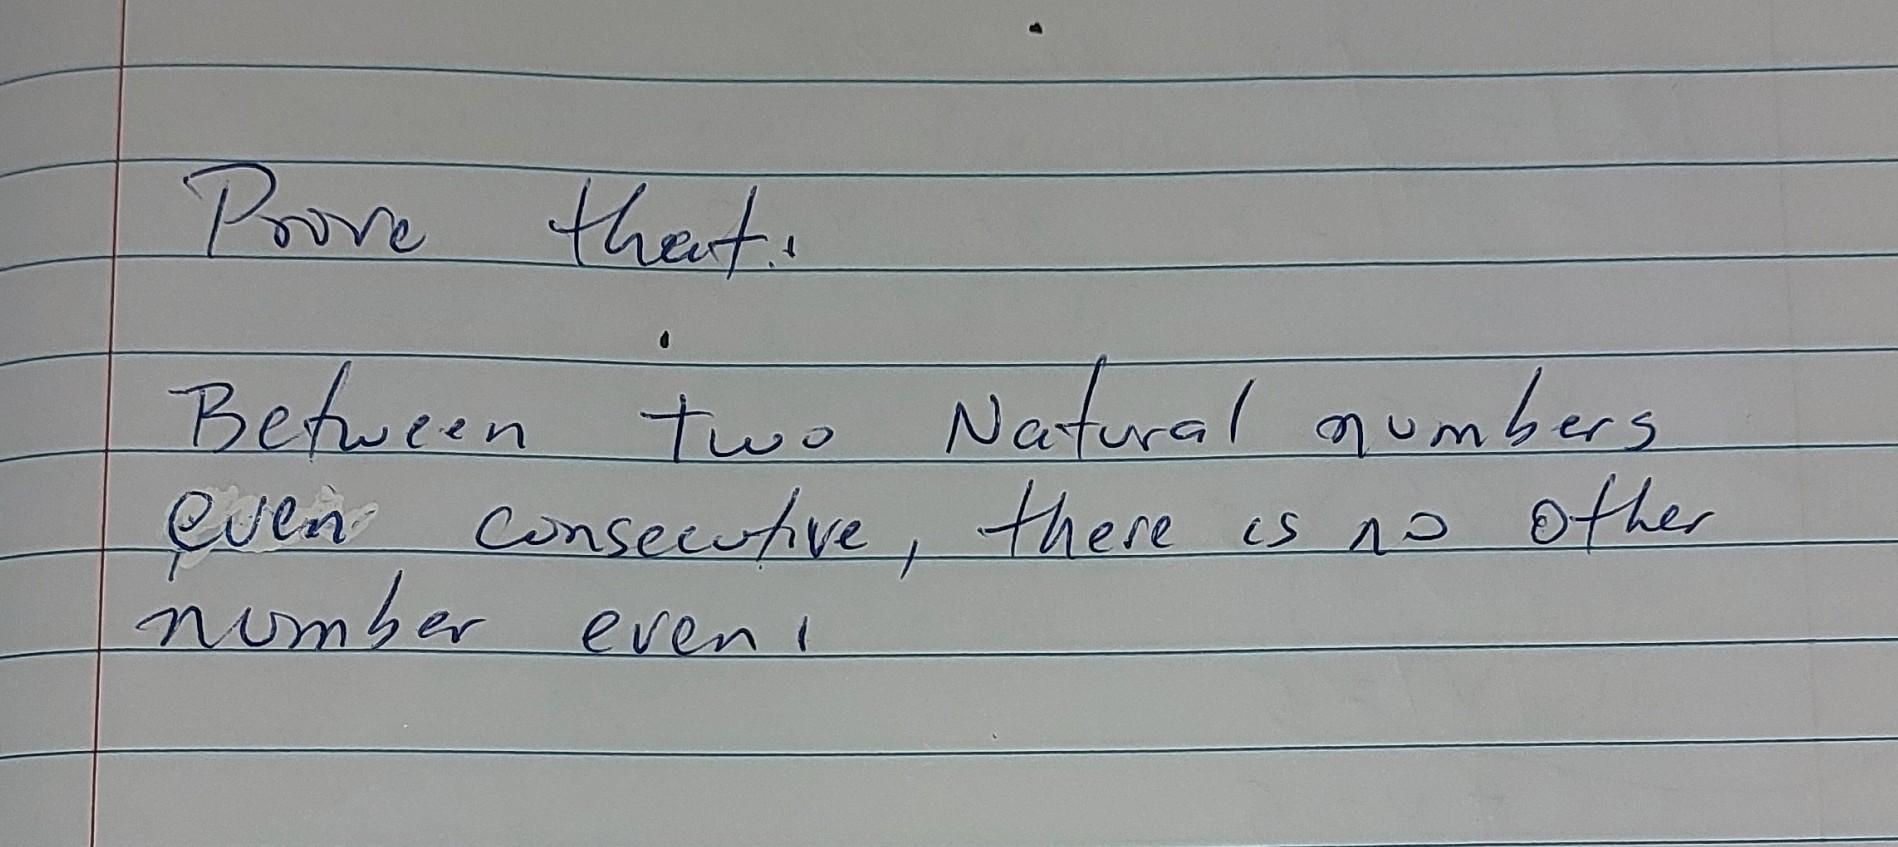 Prove that:
Between two Natural numbers
even consecutive, there is no other
number even.